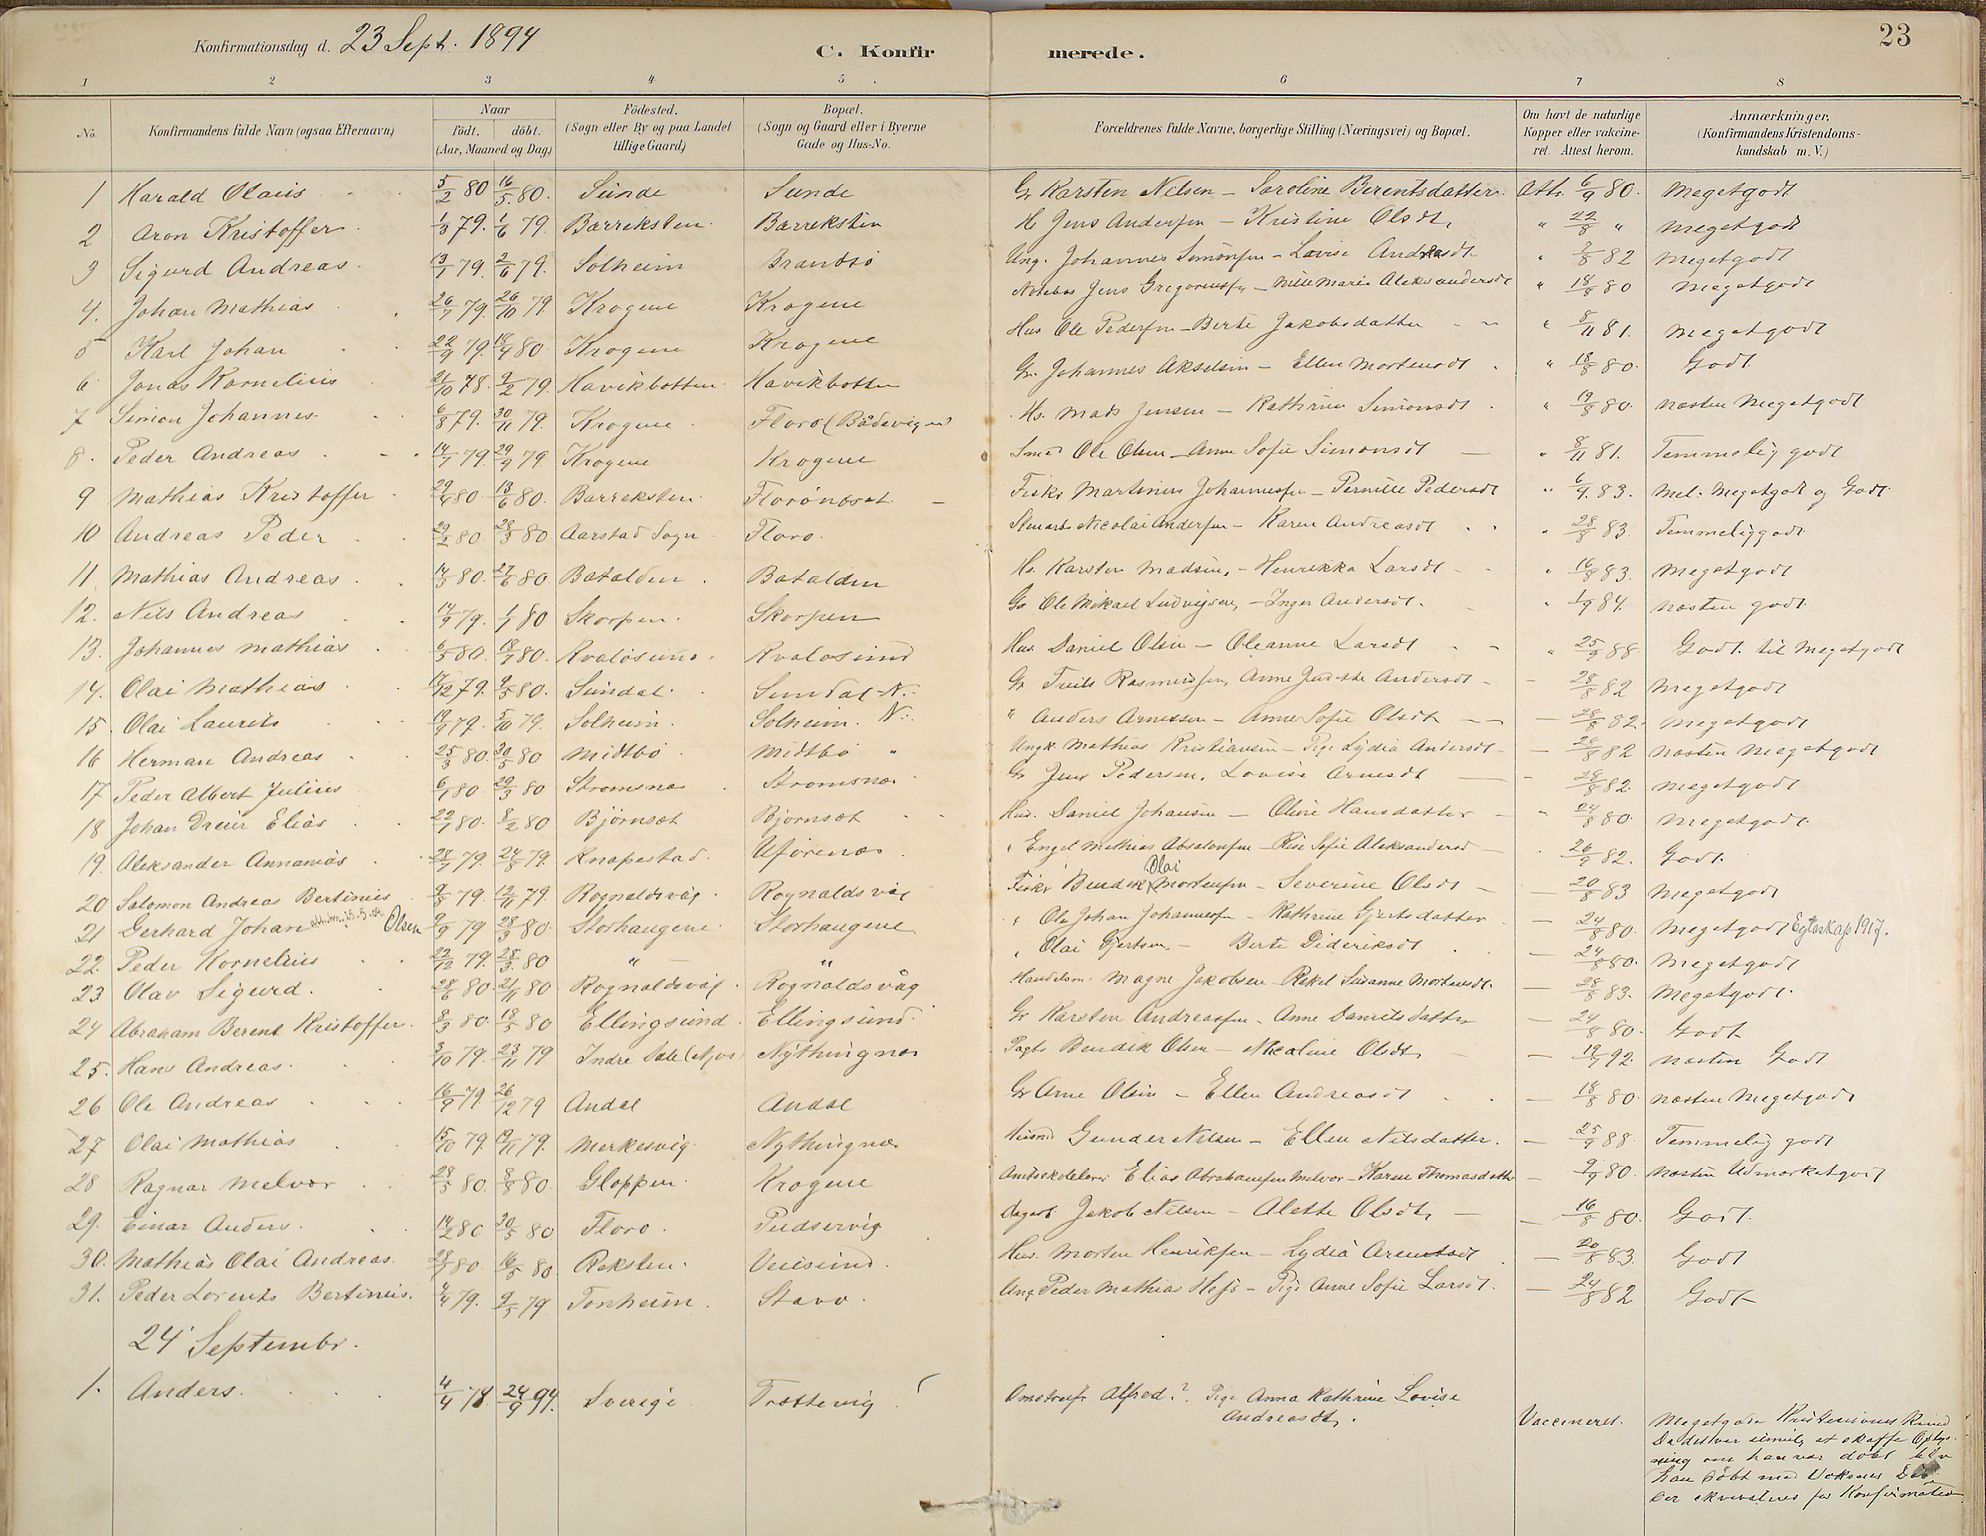 Konfirmationsdag d. 23 Sept. 1894
C. Konfirmerede.
23
1 2 3 4 5 6 7 8
No. | Konfirmandens fulde Navn (ogsaa Efternavn) | Naar født. døbt. (Aar, Maaned og Dag) | Fødested. (Sogn eller By og paa Landet tillige Gaard) | Bopæl. (Sogn og Gaard eller i Byerne Gade og Hus-No. | Forældrenes fulde Navne, borgerlige Stilling (Næringsvei) og Bopæl. | Om havt de naturlige Kopper eller vakcineret. Attest herom. | Anmærkninger, (Konfirmandens Kristendomskundskab m. V.)
1 Harald Olaus 5/2 80 16/5 80. Sunde Sunde Gr Karsten Nilsen – Saroline Berentsdatter Att. 6/9 80. Megetgodt
2 Aron Kristoffer 1/3 79. 1/6 79. Barreksten Barreksten Jens Andersen – Kristine Olsdt. " 22/8 " Megetgodt
3 Sigurd Andreas 79. 2/6 79. Solheim Brandsø Ung. Johannes Simonsen – Lovise Andreasdt " 82 Megetgodt
4. Johan Mathias 26/7 79. 26/10 79. Krogene Krogene Jens Gregoriussen – Marie Aleksandersdt " 18/8 80 Megetgodt
5 Karl Johan 22/9 79. 18/4 80. Krogene Krogene Hus Ole Pedersen – Berte Jakobsdatter " 8/11 81. Megetgodt
6 Jonas Kornelius 21/10 78. 9/2 79. Havikbotten Havikbotten Gr. Johannes Akselsen – Ellen Mortensdt " 18/8 80. Godt
7 Simon Johannes 6/8 79. 30/11 79. Krogene Florø (Bådevigen) Hs. Mads Jensen – Kathrine Simonsdt " 19/8 80. næsten Megetgodt
8. Peder Andreas 14/7 79. 29/9 79. Krogene Krogene Smed Ole Olsen – Anne Sofie Simonsdt " 8/11 81. Temmelig godt
9 Mathias Kristoffer 29/4 80 13/6 80. Barreksten Florønæset Fisker Martinus Johannessen – Pernille Pedersdt " 6/9 83. Mel: Megetgodt og Godt
10 Andreas Peder 29/2 80 28/3 80 Aarstad Sogn Florø Nicolai Andersen – Karen Andreasdt " 28/8 83 Temmeliggodt
11 Mathias Andreas 14/5 80. 27/6 80 Batalden Batalden Hs. Karsten Madsen, – Henrikka Larsdt " 16/8 83. Megetgodt
12. Nils Andreas 14/9 79. 1/1 80 Skorpen Skorpen Gr Ole Mikael Ludvigsen, – Inger Andersdt. " 1/9 84. næsten godt
13. Johannes Mathias 6/5 80. 18/7 80. Kvaløsund Kvaløsund Hus Daniel Olsen – Oleanne Larsdt " 25/9 88 Godt til Megetgodt
14. Olai Mathias 17/12 79. 9/5 80. Sundal Sundal N. Gr Truls Rasmussen, Anne Andersdt – 28/8 82 Megetgodt
15. Olai Laurits 19/9 79. 5/10 79. Solheim. Solheim. N. " Anders Arnessen – Anne Sofie Olsdt – 28/8 82. Megetgodt
16 Herman Andreas 25/3 80. 30/5 80 Midtbø Midtbø " Ungk Mathias Kristiansen – Pige Lydia Andersdt – 28/8 82 næsten Megetgodt
17 Peder Albert Julius 6/1 80. 29/3 80 Strømsnæs Strømsnæs Gr Jens Pedersen, Lovise Arnesdt – 28/8 82. Megetgodt
18 Johan Elias 22/1 80. 8/2 80 Bjørnsæt Bjørnsæt Hus. Daniel Johansen – Oline Hansdatter " 24/8 80. Megetgodt.
19. Aleksander Annanias 28/7 79. 24/8 79. Knapestad Uførenæs " Engel Mathias Absalonsen – Sofie Aleksandersd 26/9 82. Godt.
20 Salomon Andreas Bertinius 9/8 79. 12/11 79. Rognaldsvåg. Rognaldsvåg Fisker Bendik Olai Mortensen – Severine Olsdt – 20/8 83 Megetgodt
21 Gerhard Johan Olsen 9/9 79 28/3 80. Storhaugene Storhaugene " Ole Johan Johannessen – Kathrine Gjertsdatter – 24/8 80. Megetgodt Egteskap 1917.
22. Peder Kornelius 22/12 79. 28/3 80 " " " Olai Gjertsen – Berte Dideriksdt – 24/8 80. Megetgodt
23 Olav Sigurd. 28/6 80. 21/11 80 Rognaldsvåg Rognaldsvåg Handelsm. Magne Jakobsen – Rakel Susanne Mortensdt. – 28/8 83. Megetgodt.
24 Abraham Berent Kristoffer. 8/3 80 18/5 80 Ellingsund Ellingsund. Gr Karsten Andreassen – Anne Dauritsdatter – 24/8 80. Godt
25. Hans Andreas. 3/10 79. 23/11 79 Indre Dale Nythingnæs Bendik Olsen – Nicoline Olsdt, – 19/7 92. næsten Godt
26 Ole Andreas 16/9 79 26/12 79 Andal Andal Gr Arne Olsen – Ellen Andreasdt – 18/8 80 næsten Megetgodt
27 Olai Mathias 15/10 79. 19/11 79. Merkesvig. Nythingnæs Gunder Nilsen – Ellen Nilsdatter. – 25/9 88. Temmelig godt
28 Ragnar Melvær 28/5 80. 8/8 80. Gloppen. Krogene Amtsskolelærer Elias Abrahamsen Melvær – Karen Thomasdatter – 9/9 80. næsten Udmærketgodt
29. Einar Anders. 14/2 80 30/5 80 Florø. Pudservig Jakob Nilsen – Alette Olsdt, – 16/8 80. Godt.
30. Mathias Olai Andreas. 28/1 80. 16/5 80. Reksten. Veiesund. Hus. Morten Henriksen – Lydia Arentsdt – 20/8 83. Godt
31. Peder Lorents Bertinius. 4/4 79. 9/5 79 Tonheim. Stavø. Ung Peder Mathias Hess – Pige Anne Sofie Larsdt. – 24/8 82 Godt
24 Septembr.
1. Anders. 4/4 78 24/9 94. Sverige Trættevig Omstreif. Alfred?. Pige Anna Kathrine Lovise Andreasdt.
Vaccineret.
Megetgodt
Da det var umulig at skaffe Oplysning om han var døbt blev han døbt med Voksnes Daab før Konfirmation